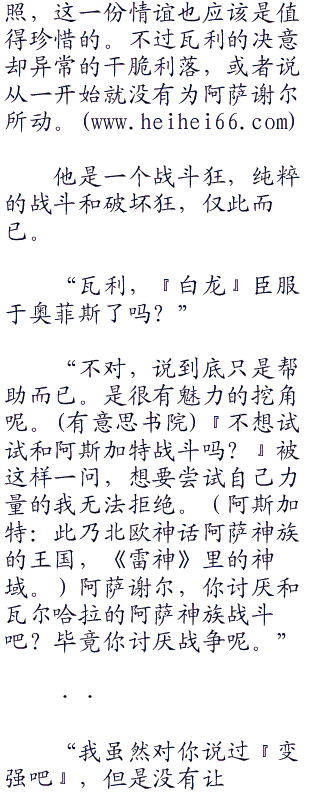 照，这一份情谊也应该是值
得珍惜的。不过瓦利的决意
却异常的干脆利落，或者说
从一开始就没有为阿萨谢尔
所动。(www.heihei66.com)
他是一个战斗狂，纯粹
的战斗和破坏狂，仅此而
已。
“瓦利，『白龙』臣服
于奥菲斯了吗？”
“不对，说到底只是帮
助而已。是很有魅力的挖角
呢。(有意思书院)『不想试
试和阿斯加特战斗吗？』被
这样一问，想要尝试自己力
量的我无法拒绝。（阿斯加
特：此乃北欧神话阿萨神族
的王国，《雷神》里的神
域。）阿萨谢尔，你讨厌和
瓦尔哈拉的阿萨神族战斗
吧？毕竟你讨厌战争呢。”
．．
“我虽然对你说过『变
强吧』，但是没有让